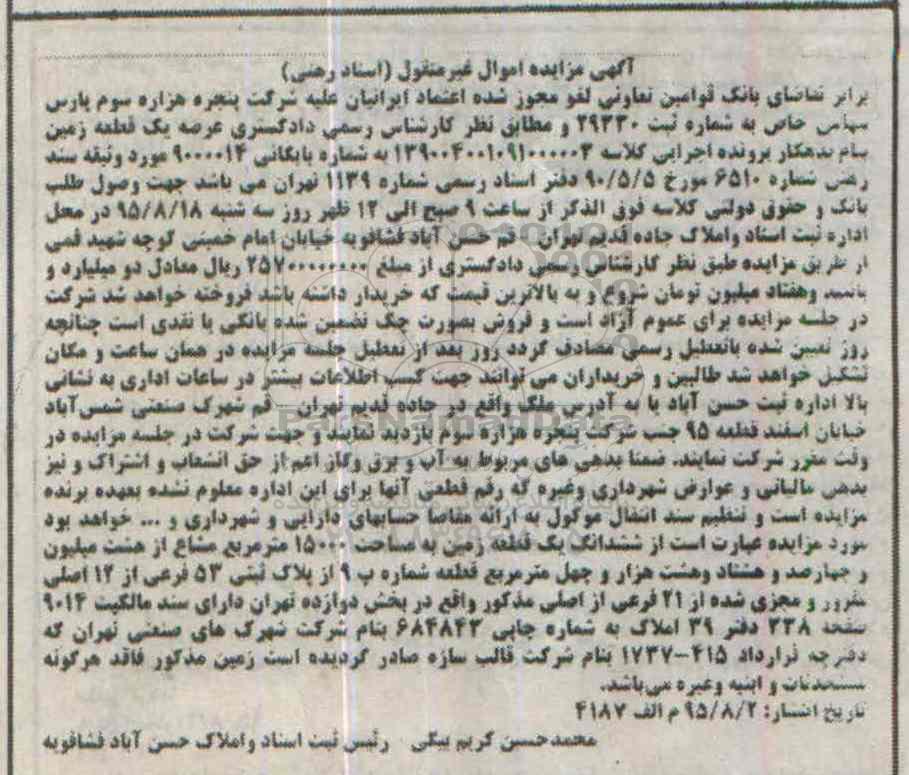 آگهی مزایده اموال غیرمنقول (اسناد رهنی)
برابر تقاضای بانک قوامین تعاونی لغو مجوز شده اعتماد ایرانیان علیه شرکت پنجره هزاره سوم پارس
سهامی خاص به شماره ثبت ۲۹۳۳۰ و مطابق نظر کارشناس رسمی دادگستری عرصه یک قطعه زمین
بنام بدهکار پرونده اجرایی کلاسه ۱۳۹۰۰۴۰۰۱۰۹۱۰۰۰۰۰۳ به شماره بایگانی ۹۰۰۰۰۱۴ مورد وثیقه سند
رهنی شماره ۶۵۱۰ مورخ ۹۰/۵/۵ دفتر اسناد رسمی شماره ۱۱۳۹ تهران می باشد جهت وصول طلب
بانک و حقوق دولتی کلاسه فوق الذکر از ساعت ۹ صبح الی ۱۲ ظهر روز سه شنبه ۹۵/۸/۱۸ در محل
اداره ثبت اسناد واملاک جاده قدیم تهران - قم حسن آباد فشافویه خیابان امام خمینی کوچه شهید قمی
از طریق مزایده طبق نظر کارشناس رسمی دادگستری از مبلغ ۲۵۷۰۰۰۰۰۰۰۰ ریال معادل دو میلیارد و
پانصد وهفتاد میلیون تومان شروع و به بالاترین قیمت که خریدار داشته باشد فروخته خواهد شد شرکت
در جلسه مزایده برای عموم آزاد است و فروش بصورت چک تضمین شده بانکی یا نقدی است چنانچه
روز تعیین شده باتعطیل رسمی مصادف گردد روز بعد از تعطیل جلسه مزایده در همان ساعت و مکان
تشکیل خواهد شد طالبین و خریداران می توانند جهت کسب اطلاعات بیشتر در ساعات اداری به نشانی
بالا اداره ثبت حسن آباد یا به آدرس ملک واقع در جاده قدیم تهران - قم شهرک صنعتی شمس‌آباد
خیابان اسفند قطعه ۹۵ جنب شرکت پنجره هزاره سوم بازدید نمایند و جهت شرکت در جلسه مزایده در
وقت مقرر شرکت نمایند. ضمنا بدهی های مربوط به آب و برق وگاز اعم از حق انشعاب و اشتراک و نیز
بدهی مالیاتی و عوارض شهرداری وغیره که رقم قطعی آنها برای این اداره معلوم نشده بعهده برنده
مزایده است و تنظیم سند انتقال موکول به ارائه مفاصا حسابهای دارایی و شهرداری و ... خواهد بود
مورد مزایده عبارت است از ششدانگ یک قطعه زمین به مساحت ۱۵۰۰۰ مترمربع مشاع از هشت میلیون
و چهارصد و هشتاد وهشت هزار و چهل مترمربع قطعه شماره ب ۹ از پلاک ثبتی ۵۳ فرعی از ۱۲ اصلی
مفروز و مجزی شده از ۲۱ فرعی از اصلی مذکور واقع در بخش دوازده تهران دارای سند مالکیت ۹۰۱۴
صفحه ۲۳۸ دفتر ۳۹ املاک به شماره چاپی ۶۸۴۸۴۳ بنام شرکت شهرک های صنعتی تهران که
دفترچه قرارداد ۴۱۵-۱۷۳۷ بنام شرکت قالب سازه صادر گردیده است زمین مذکور فاقد هرگونه
مستحدثات و ابنیه وغیره می‌باشد.
تاریخ انتشار: ۹۵/۸/۲ م الف ۴۱۸۷
محمدحسین کریم بیگی - رئیس ثبت اسناد و املاک حسن آباد فشافویه
ParsNamadData